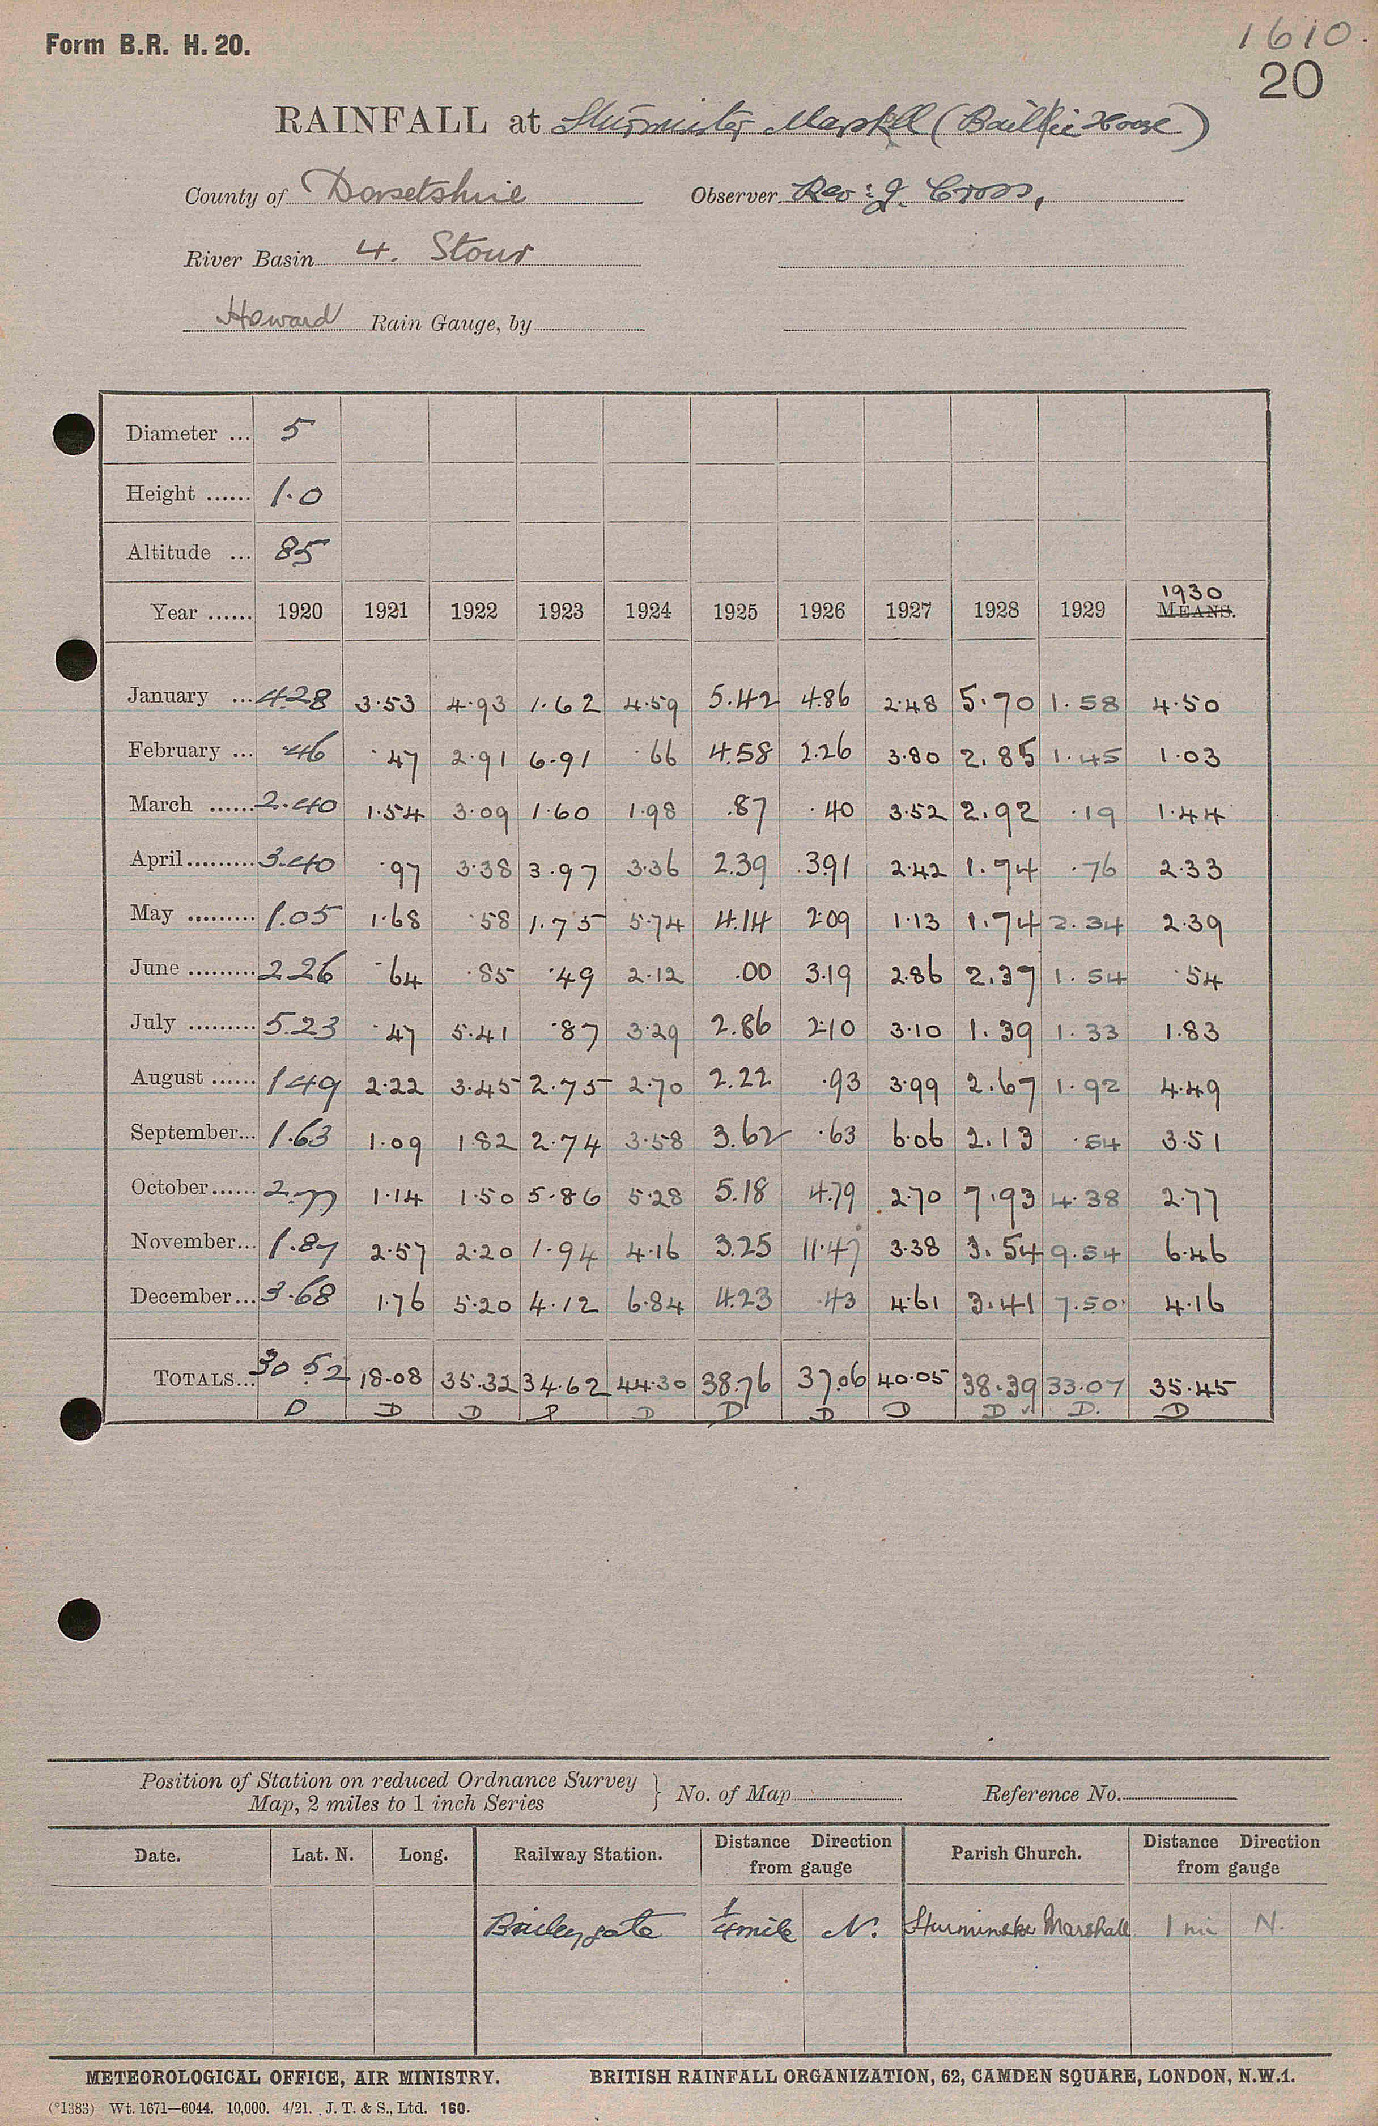 1610.
Form B.R. H. 20.
20
RAINFALL at Sturminster Marshall (Baillie House)
County of Dorsetshire Observer Rev: J. Cross,
River Basin 4. Stour
Howard Rain Gauge, by
Diameter ... 5
Height ...... 1.0
Altitude ... 85
Year ...... 1920 1921 1922 1923 1924 1925 1926 1927 1928 1929 1930 MEANS.
January ... 4.28 3.53 4.93 1.62 4.59 5.42 4.86 2.48 5.70 1.58 4.50
February ... .46 .47 2.91 6.91 .66 4.58 2.26 3.80 2.85 1.45 1.03
March ...... 2.40 1.54 3.09 1.60 1.98 .87 .40 3.52 2.92 .19 1.44
April ......... 3.40 .97 3.38 3.97 3.36 2.39 3.91 2.42 1.74 .76 2.33
May ......... 1.05 1.68 .58 1.75 5.74 4.14 2.09 1.13 1.74 2.34 2.39
June ......... 2.26 .64 .85 .49 2.12 .00 3.19 2.86 2.37 1.54 .54
July ......... 5.23 .47 5.41 .87 3.29 2.86 2.10 3.10 1.39 1.33 1.83
August ...... 1.49 2.22 3.45 2.75 2.70 2.22 .93 3.99 2.67 1.92 4.49
September... 1.63 1.09 1.82 2.74 3.58 3.62 .63 6.06 2.13 .54 3.51
October...... 2.77 1.14 1.50 5.86 5.28 5.18 4.79 2.70 7.93 4.38 2.77
November... 1.87 2.57 2.20 1.94 4.16 3.25 11.47 3.38 3.54 9.54 6.46
December... 3.68 1.76 5.20 4.12 6.84 4.23 .43 4.61 3.41 7.50 4.16
TOTALS... 30.52 18.08 35.32 34.62 44.30 38.76 37.06 40.05 38.39 33.07 35.45
D D D D D D D D D D. D
Position of Station on reduced Ordnance Survey
Map, 2 miles to 1 inch Series } No. of Map Reference No.
Date. Lat. N. Long. Railway Station. Distance Direction from gauge Parish Church. Distance Direction from gauge
Baileygate 1/4 mile N. Sturminster Marshall 1 mi N.
METEOROLOGICAL OFFICE, AIR MINISTRY. BRITISH RAINFALL ORGANIZATION, 62, CAMDEN SQUARE, LONDON, N.W.1.
(*1383) Wt. 1671—6044. 10,000. 4/21. J. T. & S., Ltd. 160.